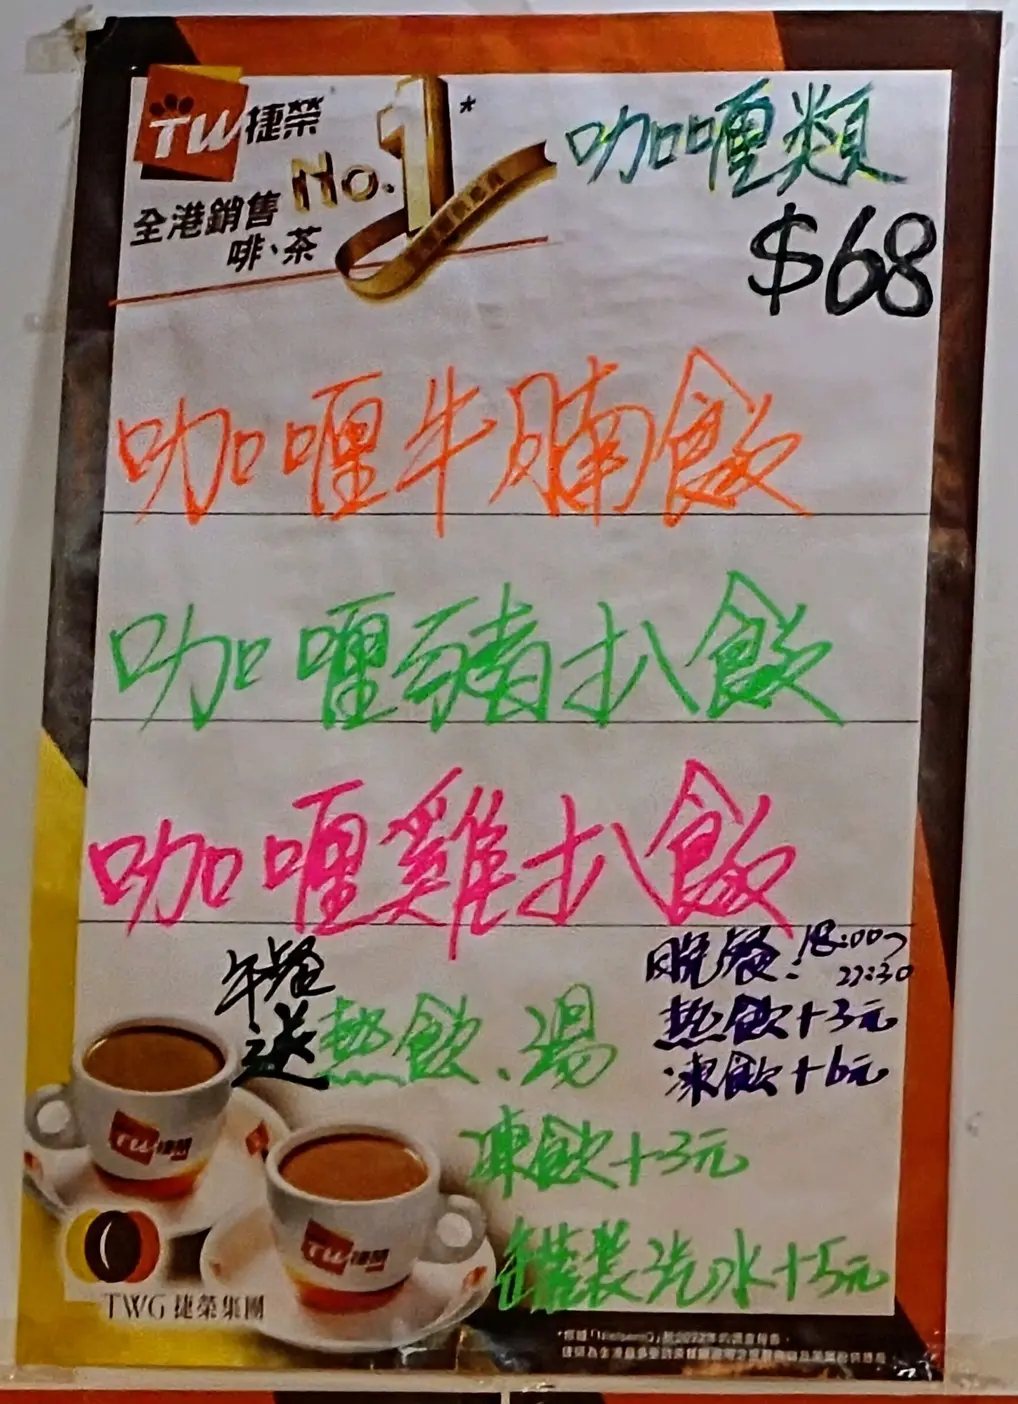 TW捷榮
全港銷售
啡、茶
No.1*
咖喱類
$68
咖喱牛腩飯
咖喱豬扒飯
咖喱雞扒飯
午餐
送熱飲、湯
凍飲+3元
罐裝汽水+5元
晚餐:18:00~
22:30
熱飲+3元
凍飲+6元
TW捷榮
TW捷榮
TWG 捷榮集團